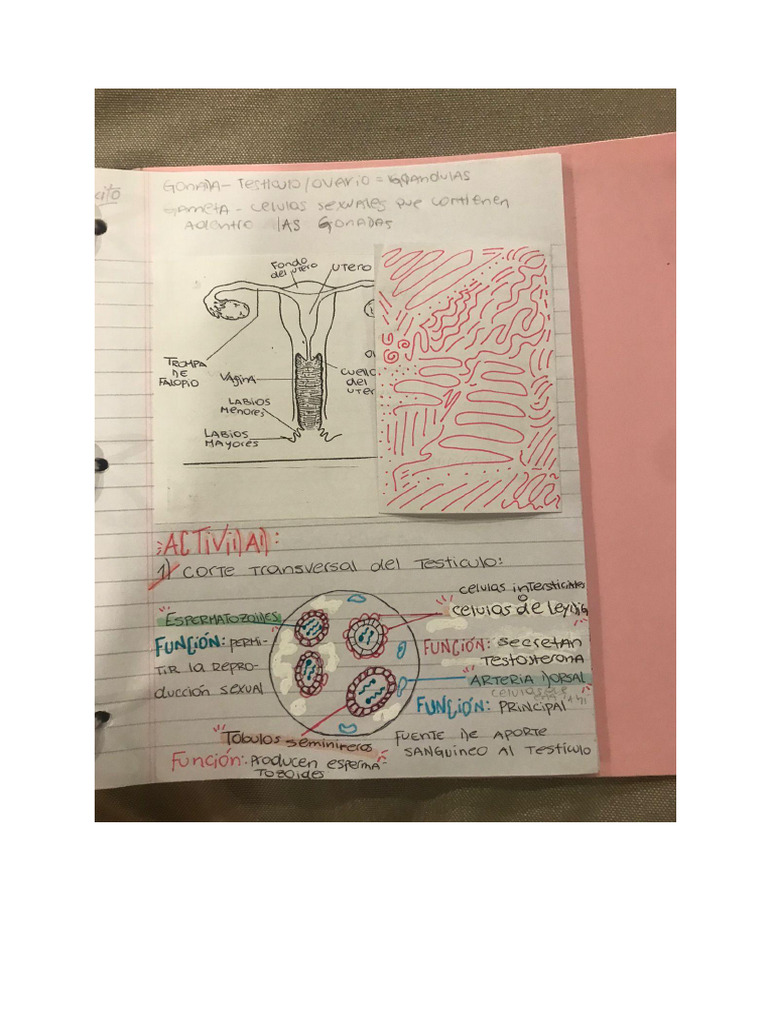 Gonada - Testiculo / ovario = Glandulas
Gameta - celulas sexuales que contienen
adentro las Gonadas
Fondo
del utero
UTero
Trompa
de
Falopio
Vagina
Cuello
del
uter
Labios
Menores
Labios
Mayores
ACTIVIDAD:
1) Corte Transversal del Testiculo:
celulas intersticiales
o
celulas de leydig
Espermatozoides
Función: Permi-
tir la repro-
ducción sexual
Función: secretan
Testosterona
Arteria Dorsal
Función: Principal
fuente de aporte
sanguineo al testiculo
Tobulos seminireros
Función: Producen esperma-
tozoides